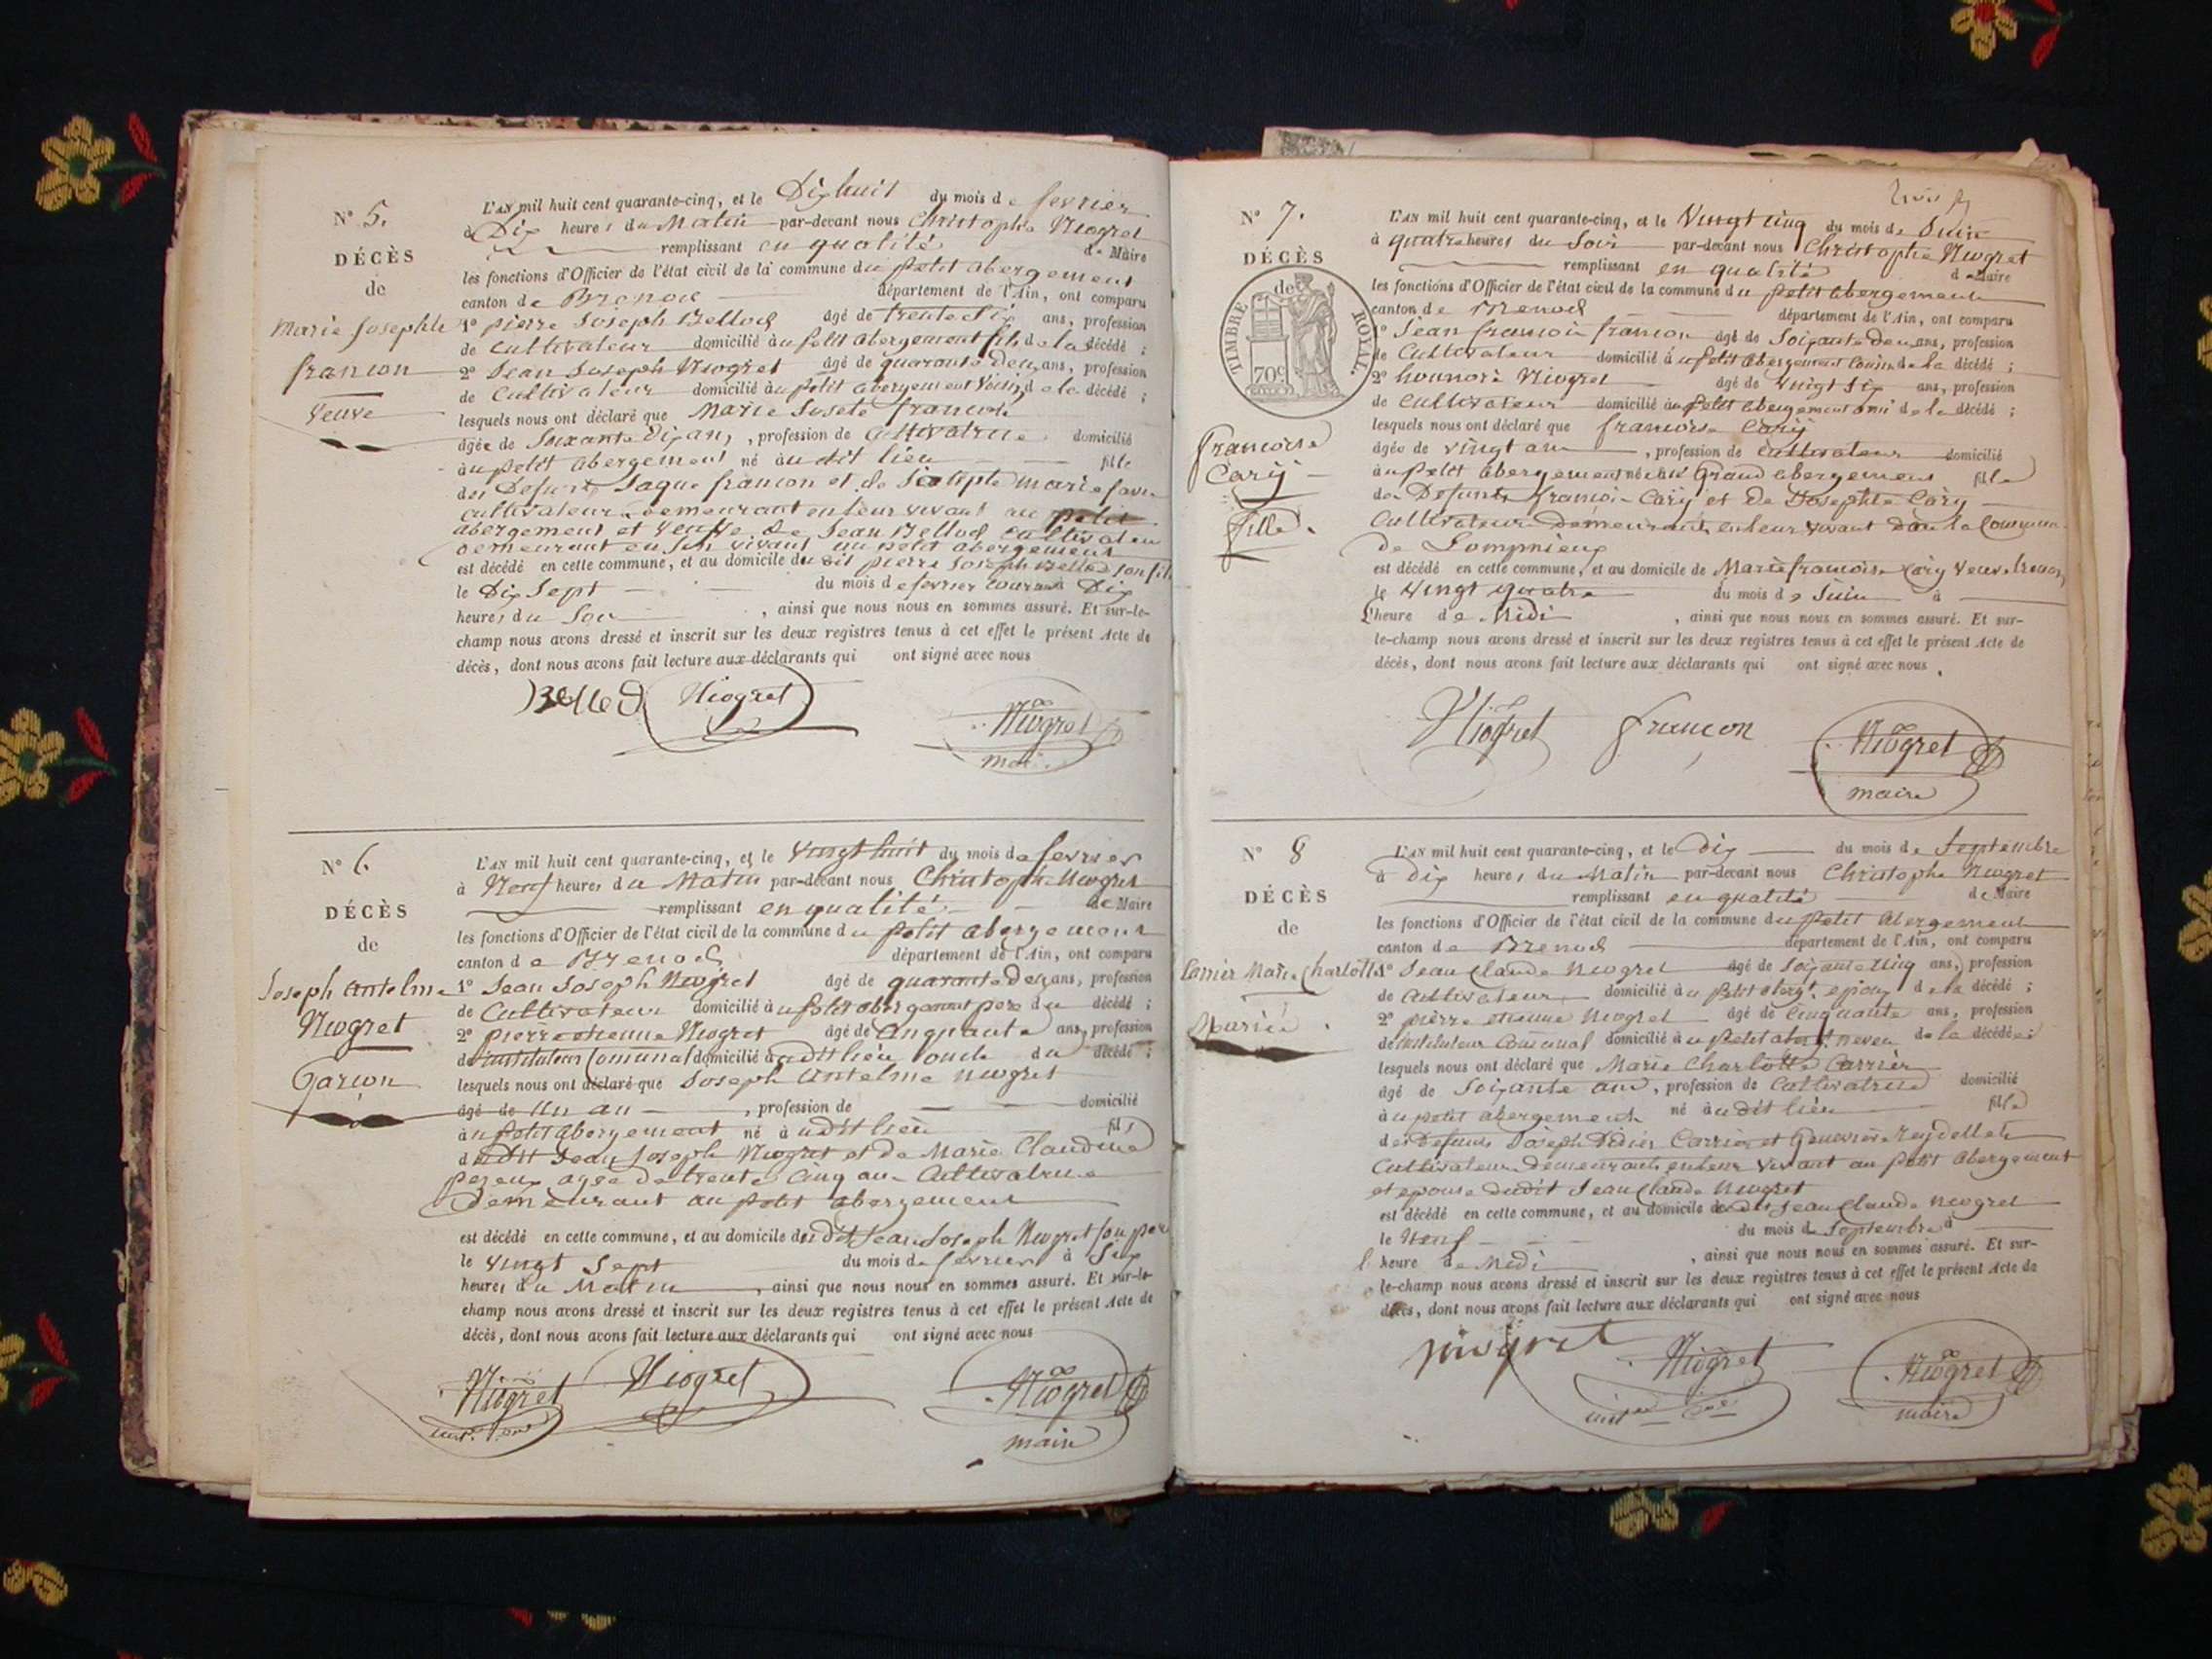 N° 5.
DÉCÈS
de
Marie Josephte
francon
Veuve
L'AN mil huit cent quarante-cinq, et le Dix huit du mois de fevrier
à Dix heures du Matin par-devant nous Christophe Niogret
remplissant en qualité de Maire
les fonctions d'Officier de l'état civil de la commune du petit abergement
canton de Brenod département de l'Ain, ont comparu
1° pierre Joseph Bellod âgé de trente Six ans, profession
de Cultivateur domicilié au petit abergement fils de la décédé ;
2° Jean Joseph Niogret âgé de quarante deux ans, profession
de Cultivateur domicilié au petit abergement Voisin de la décédé ;
lesquels nous ont déclaré que Marie Josete francon
âgée de Soixante Dix ans, profession de Cultivatrice domicilié
au petit abergement né audit lieu fille
des Defunts Jaque francon et de marie
cultivateurs demeurant en leur vivant au petit
abergement et Veuve de Jean Bellod cultivateu
demeurant en son vivant au petit abergement
est décédé en cette commune, et au domicile du dit pierre Joseph Bellod son fils
le Dix Sept du mois de fevrier courant Dix
heures du Soir, ainsi que nous nous en sommes assuré. Et sur-le-
champ nous avons dressé et inscrit sur les deux registres tenus à cet effet le présent Acte de
décès, dont nous avons fait lecture aux déclarants qui ont signé avec nous
Bellod Niogret Niogret
maire
N° 6.
DÉCÈS
de
Joseph Antelme
Niogret
Garçon
L'AN mil huit cent quarante-cinq, et le Vingt huit du mois de fevrier
à Neuf heures du Matin par-devant nous Christophe Niogret
remplissant en qualité de Maire
les fonctions d'Officier de l'état civil de la commune du petit abergement
canton de Brenod département de l'Ain, ont comparu
1° Jean Joseph Niogret âgé de quarante deux ans, profession
de Cultivateur domicilié au petit abergement pere du décédé ;
2° pierre etienne Niogret âgé de Cinquante ans, profession
de instituteur Comunal domicilié audit lieu oncle du décédé ;
lesquels nous ont déclaré que Joseph Antelme Niogret
âgé de Un an, profession de domicilié
au petit abergement né audit lieu fils
dudit Jean Joseph Niogret et de Marie Claudine
pereux agée de trente Cinq ans Cultivatrice
Demeurant au petit abergement
est décédé en cette commune, et au domicile dudit Jean Joseph Niogret son pere
le Vingt Sept du mois de fevrier à Six
heures du Matin, ainsi que nous nous en sommes assuré. Et sur-le-
champ nous avons dressé et inscrit sur les deux registres tenus à cet effet le présent Acte de
décès, dont nous avons fait lecture aux déclarants qui ont signé avec nous
Niogret Niogret Niogret
maire
N° 7.
DÉCÈS
de
TIMBRE ROYAL.
70c
francoise
Cary
fille.
L'AN mil huit cent quarante-cinq, et le Vingt cinq du mois de Juin
à quatre heures du Soir par-devant nous Christophe Niogret
remplissant en qualité de Maire
les fonctions d'Officier de l'état civil de la commune du petit abergement
canton de Brenod département de l'Ain, ont comparu
1° Jean francois francon âgé de Soixante deux ans, profession
de Cultivateur domicilié au petit abergement Cousin de la décédé ;
2° honnoré Niogret âgé de Vingt Six ans, profession
de Cultivateur domicilié au petit abergement ami de la décédé ;
lesquels nous ont déclaré que francoise Cary
âgée de vingt ans, profession de Cultivateur domicilié
au petit abergement né au Grand abergement fille
des Defunts francois Cary et de Josephte Cary
Cultivateurs demeurant en leur vivant dans la Commune
de Lompnieux
est décédé en cette commune, et au domicile de Marie francoise Cary Veuve
le Vingt quatre du mois de Juin à
L'heure de Midi, ainsi que nous nous en sommes assuré. Et sur-
le-champ nous avons dressé et inscrit sur les deux registres tenus à cet effet le présent Acte de
décès, dont nous avons fait lecture aux déclarants qui ont signé avec nous.
Niogret françon Niogret
maire
N° 8
DÉCÈS
de
Carrier Marie Charlotte
Mariée.
L'AN mil huit cent quarante-cinq, et le Dix du mois de Septembre
à Dix heures du Matin par-devant nous Christophe Niogret
remplissant en qualité de Maire
les fonctions d'Officier de l'état civil de la commune du petit abergement
canton de Brenod département de l'Ain, ont comparu
1° Jean Claude Niogret âgé de Soixante Cinq ans, profession
de Cultivateur domicilié au petit abergt. epoux de la décédé ;
2° pierre etienne Niogret âgé de Cinquante ans, profession
de instituteur Comunal domicilié au petit abergt. neveu de la décédée ;
lesquels nous ont déclaré que Marie Charlotte Carrier
âgé de Soixante ans, profession de Cultivatrice domicilié
au petit abergement né audit lieu fille
des Defunts Joseph Didier Carrier et Genevieve Reydellet
Cultivateurs demeurant en leur vivant au petit abergement
et epouse dudit Jean Claude Niogret
est décédé en cette commune, et au domicile dudit Jean Claude Niogret
le Neuf du mois de Septembre à
l'heure de Midi, ainsi que nous nous en sommes assuré. Et sur-
le-champ nous avons dressé et inscrit sur les deux registres tenus à cet effet le présent Acte de
décès, dont nous avons fait lecture aux déclarants qui ont signé avec nous
niogret Niogret Niogret
maire